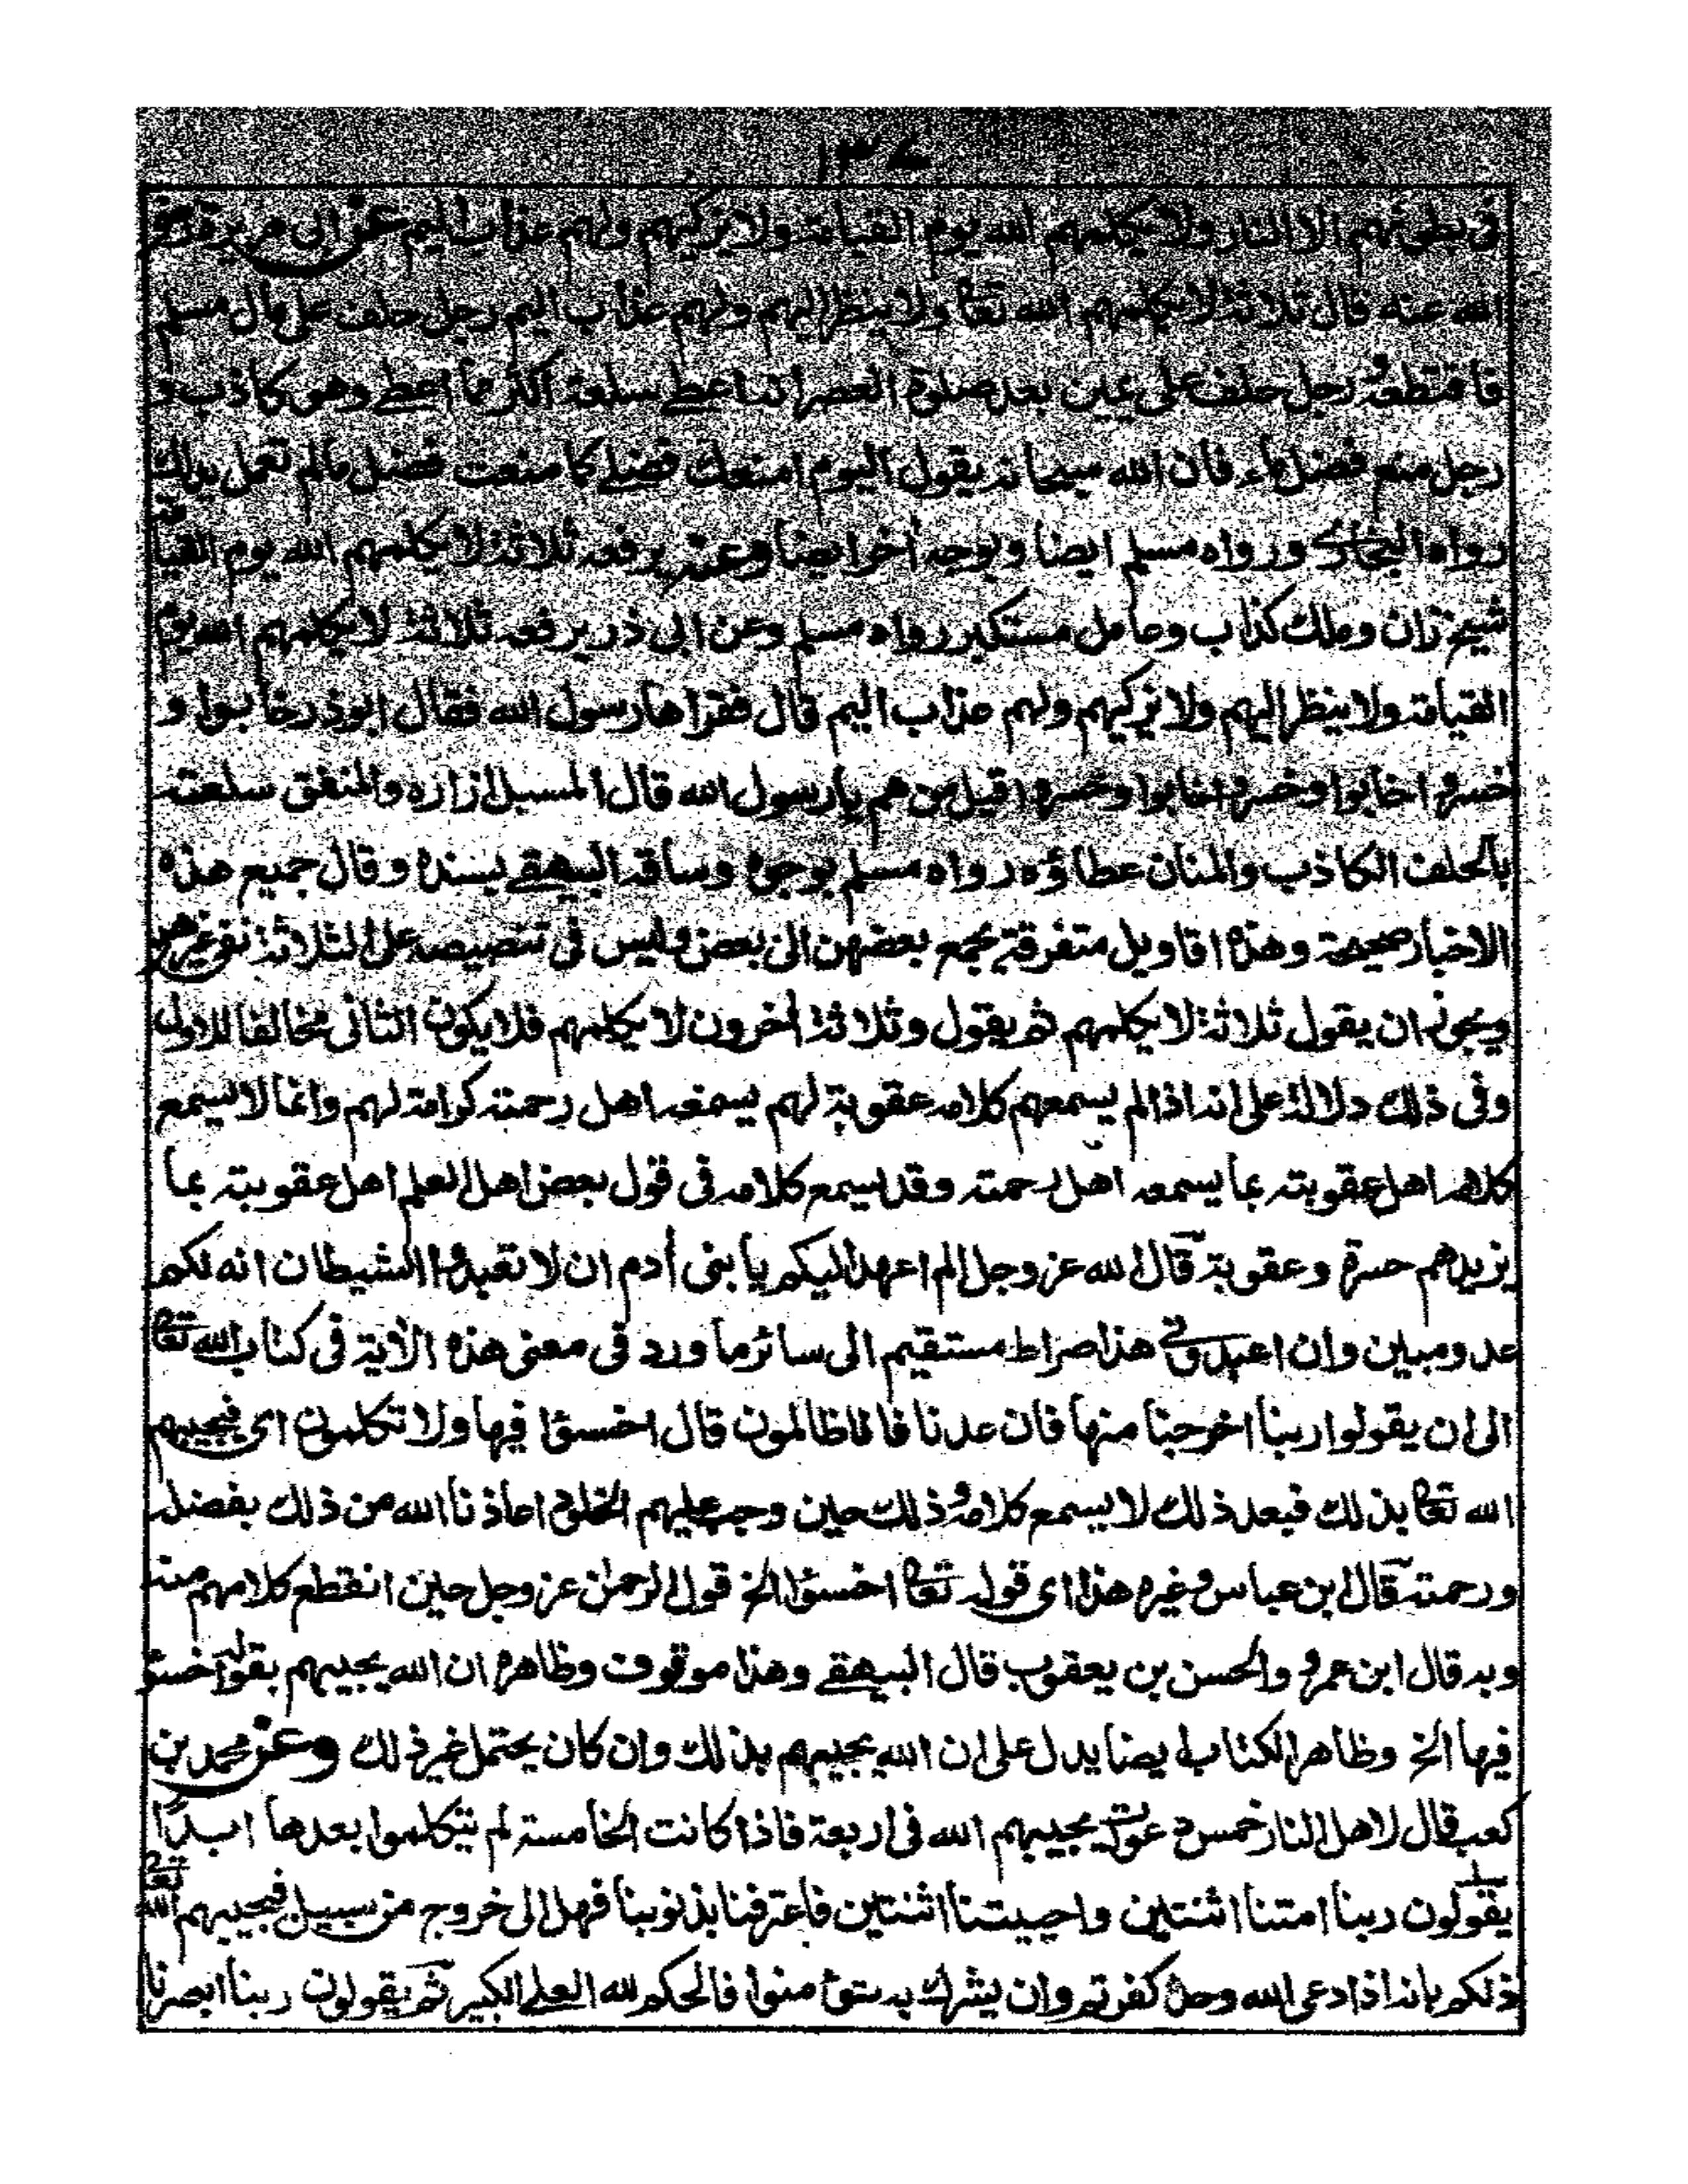 ١٣٧
فى بطونهم الا النار ولا يكلمهم الله يوم القيامة ولا يزكيهم ولهم عذاب اليم عن ابى هريرة رضى
الله عنه قال ثلاثة لا يكلمهم الله تعا ولا ينظر اليهم ولهم عذاب اليم رجل حلف على مال مسلم
فاقتطعه ورجل حلف على يمين بعد صلوة العصر انه اعطے سلعة اكثر مما اعطے وهو كاذب و
رجل منع فضل ماء فان الله سبحانه يقول اليوم امنعك فضلے كما منعت فضل مالم تعمل يداك
رواه البخارے ورواه مسلم ايضا وبوجه أخر ايضا وعنه يرفعه ثلاثة لا يكلمهم الله يوم القيامة
شيخ زان وملك كذاب وعامل مستكبر رواه مسلم وعن ابى ذر يرفعه ثلاثة لا يكلمهم الله يوم
القيامة ولا ينظر اليهم ولا يزكيهم ولهم عذاب اليم قال فقرأها رسول الله فقال ابوذر خابوا و
خسروا خابوا وخسروا خابوا وخسروا قيل من هم يا رسول الله قال المسبل ازاره والمنفق سلعته
بالحلف الكاذب والمنان عطاؤه رواه مسلم بوجوه وساقه البيهقے بسنده وقال جميع هذه
الاخبار صحيحة وهذه اقاويل متفرقة يجمع بعضهن الى بعض وليس فى تنصيصه على الثلاثة نفى غيرهن
ويجوز ان يقول ثلاثة لا يكلمهم ثم يقول وثلاثة أخرون لا يكلمهم فلا يكون الثانى مخالفا للاول
وفى ذلك دلالة على انه اذا لم يسمعهم كلامه عقوبة لهم يسمعه اهل رحمته كرامة لهم وانما لا يسمع
كلامه اهل عقوبته بما يسمعه اهل رحمته وقد يسمع كلامه فى قول بعض اهل العلم اهل عقوبته بما
يزيدهم حسرة وعقوبة قال الله عز وجل الم اعهد اليكم يا بنى أدم ان لا تعبدوا الشيطان انه لكم
عدو مبين وان اعبدونے هذا صراط مستقيم الى سائر ما ورد فى معنى هذه الأية فى كتاب الله تعا
الى ان يقولوا ربنا اخرجنا منها فان عدنا فانا ظالمون قال اخسؤا فيها ولا تكلمون اى فيجيبهم
الله تعا بذلك فبعد ذلك لا يسمع كلامه وذلك حين وجب عليهم الخلود اعاذنا الله من ذلك بفضله
ورحمته قال ابن عباس وغيره هذا اى قوله تعا اخسؤا الخ قول الرحمن عز وجل حين انقطع كلامهم منه
وبه قال ابن عمرو والحسن بن يعقوب قال البيهقے وهذا موقوف وظاهره ان الله يجيبهم بقوله اخسئو
فيها الخ وظاهر الكتاب ايضا يدل على ان الله يجيبهم بذلك وان كان يحتمل غير ذلك وعن محمد بن
كعب قال لاهل النار خمس دعوات يجيبهم الله فى اربعة فاذا كانت الخامسة لم يتكلموا بعدها ابدًا
يقولون ربنا امتنا اثنتين واحييتنا اثنتين فاعترفنا بذنوبنا فهل الى خروج من سبيل فيجيبهم الله تعا
ذلكم بانه اذا دعى الله وحده كفرتم وان يشرك به تؤمنوا فالحكم لله العلى الكبير ثم يقولون ربنا ابصرنا